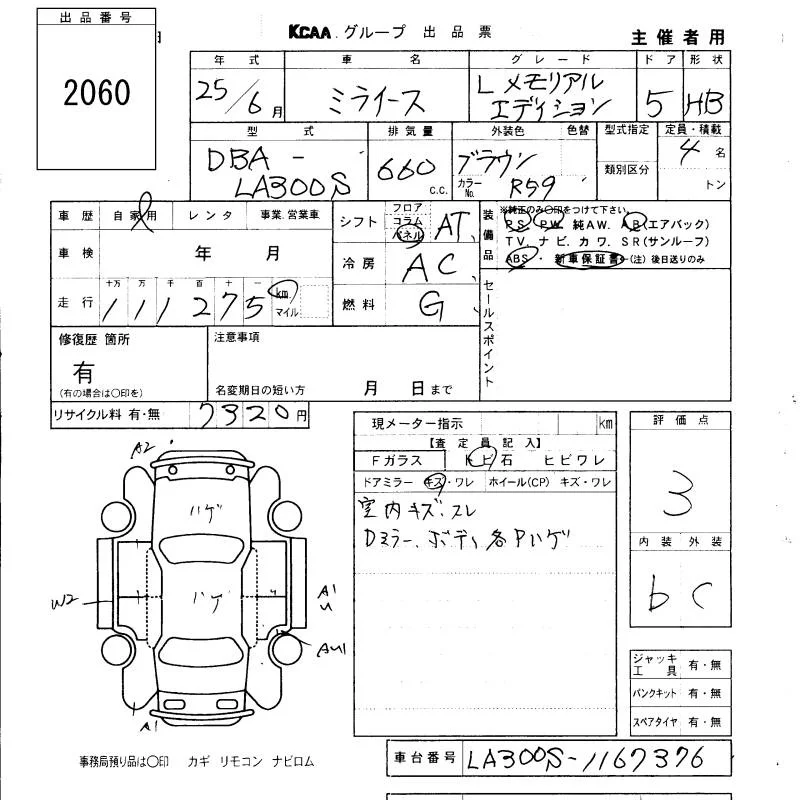 出品番号
2060
KCAA グループ 出品票
主催者用
年式 車名 グレード ドア 形状
25/6月 ミライース Lメモリアルエディション 5 HB
型式 排気量 外装色 色替 型式指定 定員・積載
DBA-LA300S 660 c.c. ブラウン 類別区分 4名
カラーNo. R59 トン
車歴 自家用 レンタ 事業.営業車
シフト フロア コラム パネル AT
装備品 ※純正のみ〇印をつけて下さい。
PS. PW. 純AW. AB(エアバック)
TV. ナビ. カワ. SR(サンルーフ)
ABS・新車保証書←(注)後日送りのみ
車検 年 月
冷房 AC
十万 万 千 百 十 一
走行 111275 km マイル
燃料 G
セールスポイント
修復歴 箇所
有
(有の場合は〇印を)
注意事項
名変期日の短い方 月 日まで
リサイクル料 有・無 7320円
現メーター指示 km
【査定員記入】
Fガラス トビ石 ヒビワレ
ドアミラー キズ・ワレ ホイール(CP) キズ・ワレ
室内キズ.スレ
Dミラー.ボディ各Pハゲ
評価点
3
内装 外装
b C
A2
ハゲ
ハゲ
W2
A1
U
AU1
A1
ジャッキ工具 有・無
パンクキット 有・無
スペアタイヤ 有・無
事務局預り品は〇印 カギ リモコン ナビロム
車台番号 LA300S-1167376